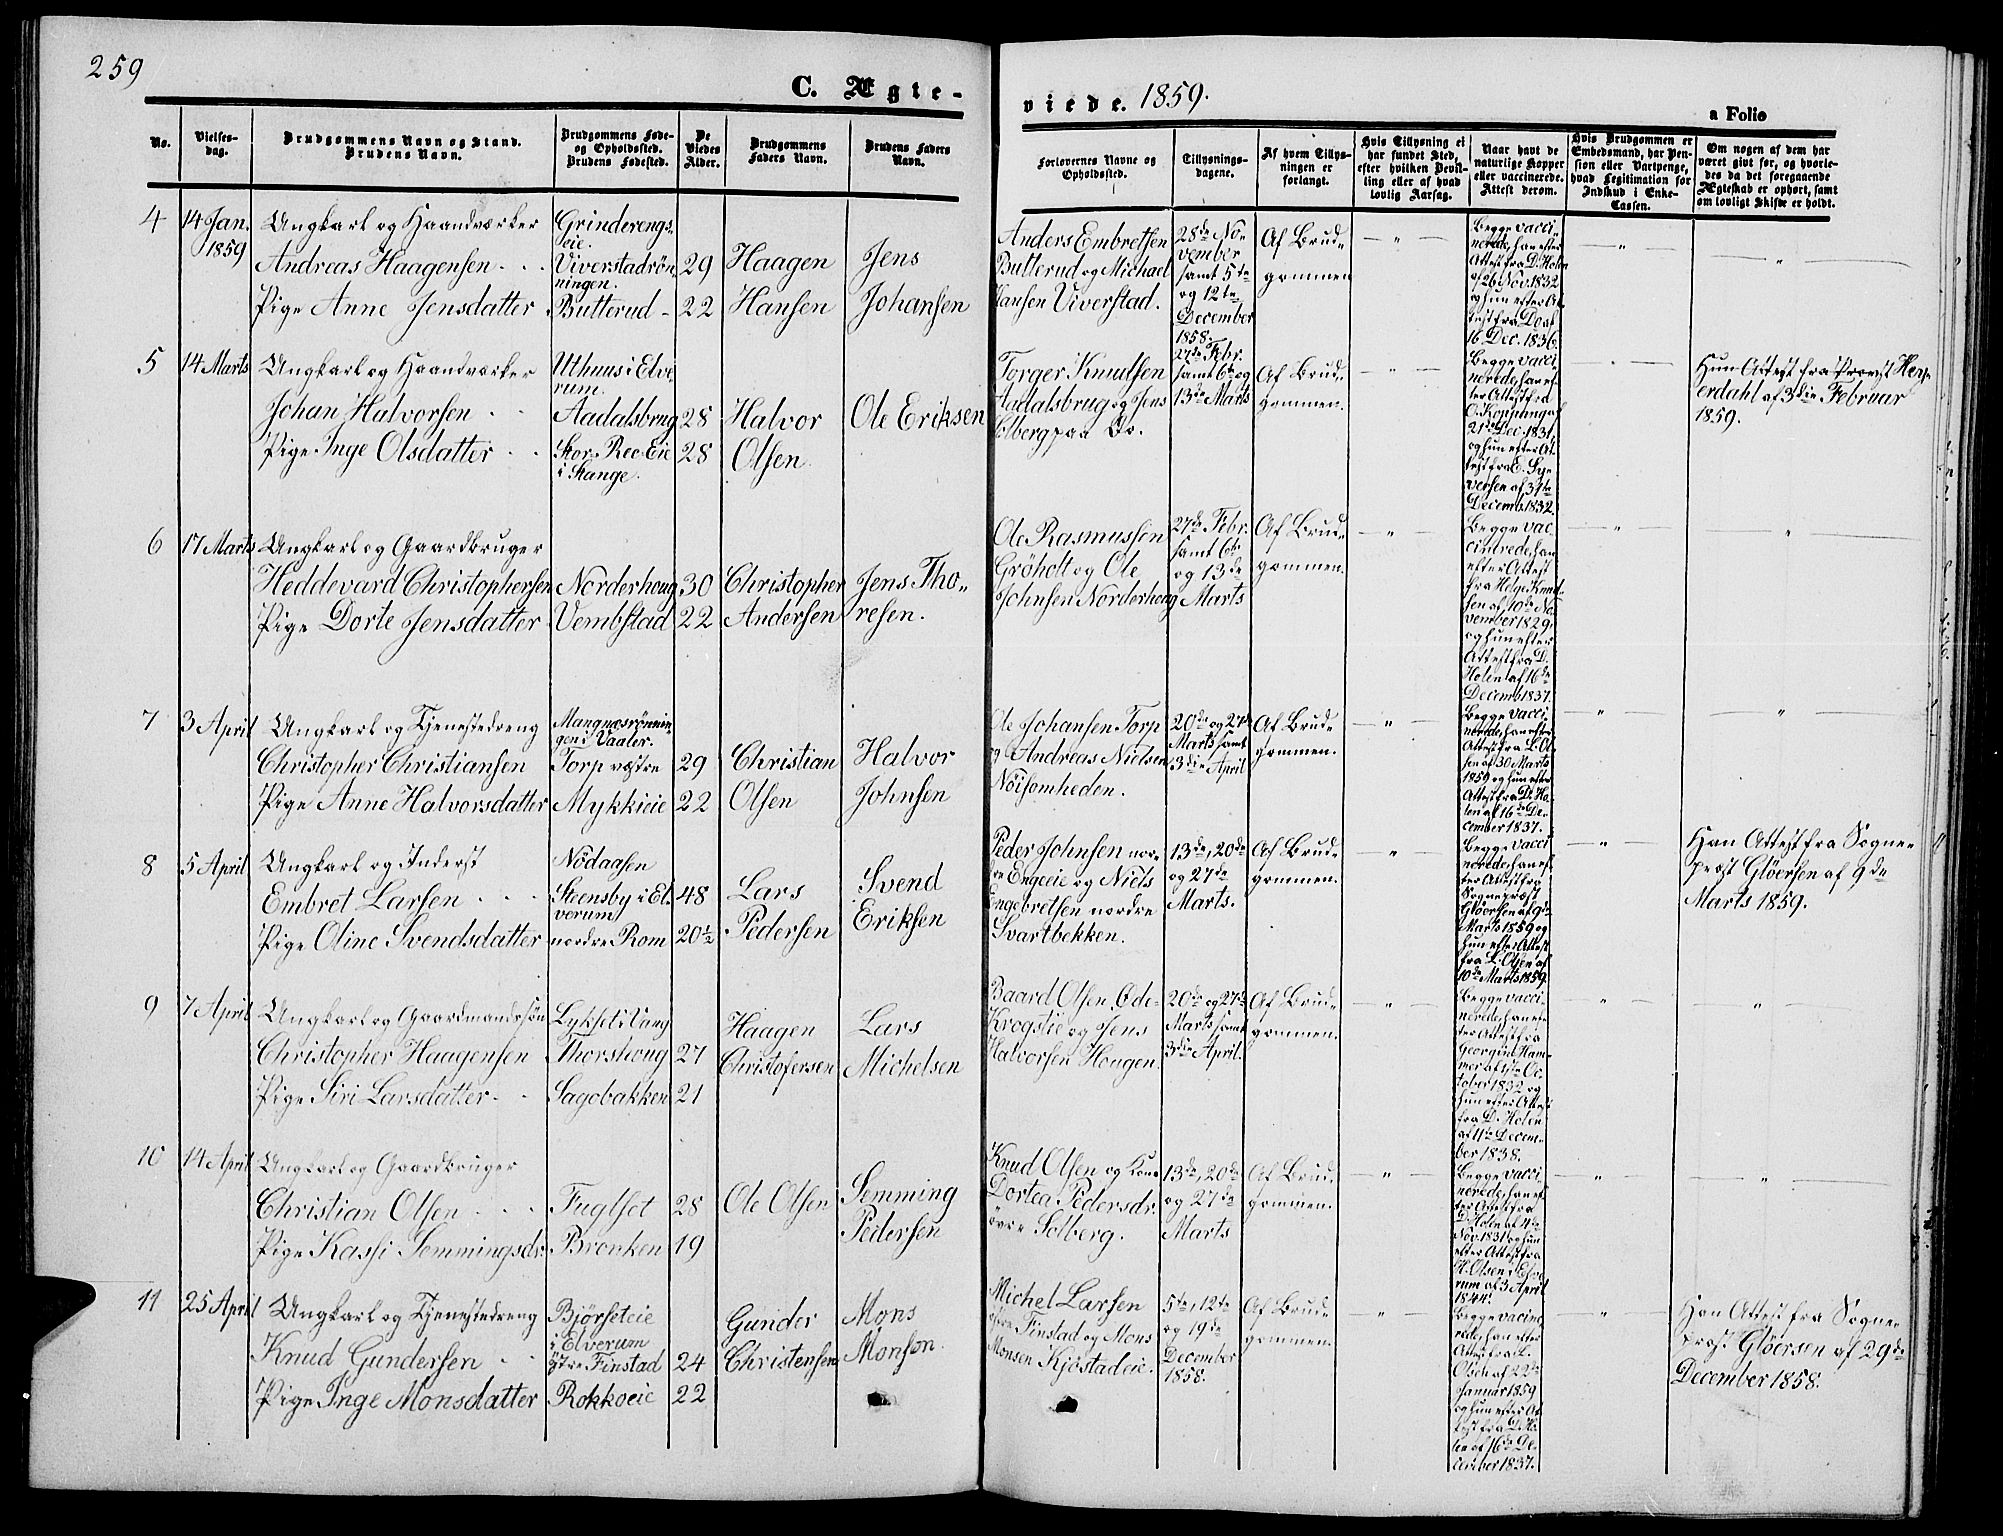 259
C. Ægte-
viede. 1859.
a Folio
No.
Vielses-
dag.
Brudgommens Navn og Stand.
Brudens Navn.
Brudgommens Føde-
og Opholdssted.
Brudens Fødested.
De
Viedes
Alder.
Brudgommens
Faders Navn.
Brudens Faders
Navn.
Forlovernes Navne og
Opholdssted.
Tillysnings-
dagene.
Af hvem Tillys-
ningen er
forlangt.
Hvis Tillysning ei
har fundet Sted,
efter hvilken Bevil-
ling eller af hvad
lovlig Aarsag.
Naar havt de
naturlige Kopper
eller vaccinerede.
Attest derom.
Hvis Brudgommen er
Embedsmand, har Pen-
sion eller Vartpenge,
hvad Legitimation for
Indskud i Enke-
Cassen.
Om nogen af dem har
været givt før, og hvorle-
des da det foregaaende
Ægteskab er ophørt, samt
om lovligt Skifte er holdt.
4
14 Jan.
1859
Ungkarl og Haandværker
Andreas Haagensen
Pige Anne Jensdatter
Grinderengs-
eie.
Viverstadrøn-
ningen.
Butterud
29
22
Haagen
Hansen
Jens
Johansen
Anders Embretsen
Butterud og Michael
Hansen Viverstad.
28de No-
vember
samt 5te
og 12te
December
1858.
Af Brud-
gommen
Begge vacci-
nerede, han efter
Attest fra D. Holen
af 26 Nov. 1832
og hun efter At-
test fra Do af
16 Dec. 1836.
5
14 Marts
Ungkarl og Haandværker
Johan Halvorsen
Pige Inge Olsdatter
Uthuus i Elve-
rum.
Aadalsbrug
Stor-Ree-Eie
i Stange.
28
28
Halvor
Olsen
Ole Eriksen
Torger Knudsen
Aadalsbrug og Jens
Solberg paa Do.
27de Febr.
samt 6te og
13de Marts
Af Brud-
gommen.
Begge vacci-
nerede, han ef-
ter Attest fra
O. Koppang af
21de Dec. 1831
og hun efter At-
test fra E. Sy-
versen af 31te
Decemb. 1832.
Hun Attest fra Provst Hey-
erdahl af 3die Februar
1859.
6
17 Marts
Ungkarl og Gaardbruger
Heddevard Christophersen
Pige Dorte Jensdatter
Norderhoug
Vembstad
30
22
Christopher
Andersen
Jens Tho-
resen.
Ole Rasmussen
Gröholt og Ole
Johnsen Norderhoug
27de Febr.
samt 6te
og 13de
Marts
Af Brud-
gommen.
Begge vac-
cinerede, han
efter Attest
fra Helge Knud-
sen af 10de No-
vember 1829.
og hun efter
Attest fra D.
Holen af 16de
Decemb. 1837.
7
3 April
Ungkarl og Tjenestedreng
Christopher Christiansen
Pige Anne Halvorsdatter
Mangnæsrønnin-
gen i Vaaler.
Torp væstre
Mykkieie
29
22
Christian
Olsen
Halvor
Johnsen
Ole Johansen Torp
og Andreas Nielsen
Nöisomheden.
20de og 27de
Marts samt
3die April
Af Brud-
gommen.
Begge vacci-
nerede, han efter
Attest fra L. Ol-
sen af 30 Marts
1859 og hun efter
Attest fra D. Ho-
len af 16de De-
cember 1837.
8
5 April
Ungkarl og Inderst
Embret Larsen
Pige Oline Svendsdatter
Nödaasen
Steensby i El-
verum
nordre Rom
48
20½
Lars
Pedersen
Svend
Eriksen
Peder Johnsen nor-
dre Engeeie og Niels
Engebretsen nordre
Svartbekken.
13de, 20de
og 27de
Marts.
Af Brud-
gommen.
Begge vacci-
nerede, han ef-
ter Attest fra
Sognepræst
Glöersen af 9de
Marts 1859 og
hun efter Attest
fra L. Olsen af
10de Marts 1859.
Han Attest fra Sogne-
præst Glöersen af 9de
Marts 1859.
9
7 April
Ungkarl og Gaardmandssøn
Christopher Haagensen
Pige Siri Larsdatter
Lykset i Vang
Thorshoug
Sagobakken
27
21
Haagen
Christofersen
Lars
Michelsen
Baard Olsen Öde-
Krogstie og Jens
Halvorsen Hougen
20de og 27de
Marts samt
3die April.
Af Brud-
gommen.
Begge vacci-
nerede, han ef-
ter Attest fra
Georgine Ham-
mer af 4de Oc-
tober 1832 og
hun efter Attest
fra D. Holen
af 11te Decem-
ber 1838.
10
14 April
Ungkarl og Gaardbruger
Christian Olsen
Pige Kassi Semmingsdr.
Fuglset
Bronken
28
19
Ole Olsen
Semming
Pedersen
Knud Olsen og Kone
Dortea Pedersdr.
övre Solberg.
13de, 20de
og 27de
Marts
Af Brud-
gommen.
Begge vacci-
nerede, han ef-
ter Attest fra
D. Holen af 4de
Nov. 1831 og hun
efter Attest fra
H. Olsen i Elve-
rum af 3 April
1844.
11
25 April
Ungkarl og Tjenestedreng
Knud Gundersen
Pige Inge Monsdatter
Bjørseteie
i Elverum
östre Finstad
Rokkoeie
24
22
Gunder
Christensen
Mons
Monson.
Michel Larsen
östre Finstad og Mons
Monsen Kjöstadeie.
5te, 12te
og 19de
December
1858.
Af Brud-
gommen.
Begge vacine-
rede, han efter
Attest fra L.
Olsen af 22de
Januar 1859
og hun efter At-
test fra D. Ho-
len af 16de De-
cember 1837.
Han Attest fra Sogne-
præst Glöersen af 29de
December 1858.